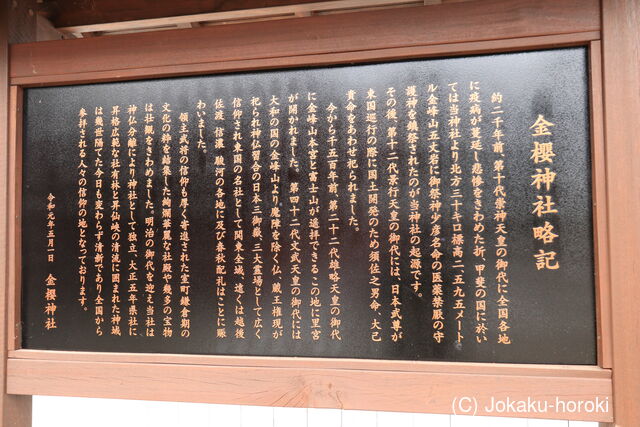 金櫻神社略記
約二千年前、第十代崇神天皇の御代に全国各地
に疫病が蔓延し悲惨をきわめた折、甲斐の国に於い
ては当神社より北方二十キロ標高二、五九五メート
ル金峰山五丈岩に御祭神少彦名命の医薬禁厭の守
護神を鎮祭なされたのが当神社の起源です。
その後、第十二代景行天皇の御代には、日本武尊が
東国巡行の際に国土開発のため須佐之男命、大己
貴命をあわせ祀られました。
今から千五百年前、第二十二代雄略天皇の御代
に金峰山本宮と富士山が遥拝できるこの地に里宮
が開かれました。第四十二代文武天皇の御代には
大和の国の金峰山より魔障を除く仏、蔵王権現が
祀られ神仏習合の日本三御嶽、三大霊場として広く
信仰され東国の名社として関東全域、遠くは越後
佐渡、信濃、駿河の各地に及び春秋配札はことに賑
わいました。
領主武将の信仰も厚く寄進された室町鎌倉期の
文化の粋を結集した絢爛華麗な社殿や幾多の宝物
は壮観をきわめました。明治の御代を迎え当社は
神仏分離により神社として独立、大正五年県社に
昇格広範な社有林と昇仙峡の清流に囲まれた神域
は幾世隔てた今日も変わらず清新であり全国から
参拝される人々の信仰の地となっております。
令和元年五月一日 金櫻神社
(C) Jokaku-horoki